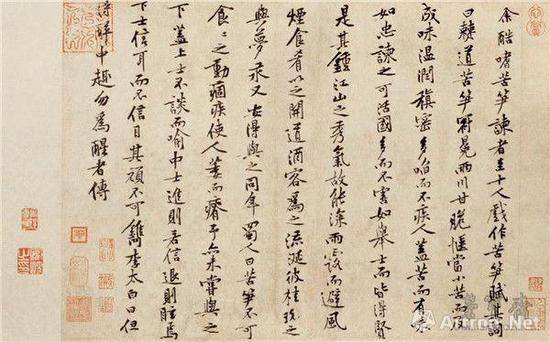 余酷嗜苦筍諫者至十人戲作苦筍賦其詞
曰僰道苦筍冠冕兩川甘脆愜當小苦而反
成味溫潤稹密多啗而不疾人蓋苦而有味
如忠諫之可活國多而不害如舉士而皆得賢
是其鍾江山之秀氣故能深雨露而避風
煙食肴以之開道酒客為之流涎彼桂玫之
與夢永又安得與之同年蜀人曰苦筍不可
食〻之動痼疾使人萎而瘠予亦未嘗與之
下蓋上士不談而喻中士進則若信退則眩焉
下士信耳而不信目其頑不可鐫李太白曰但
得醉中趣勿為醒者傳
Artron.Net